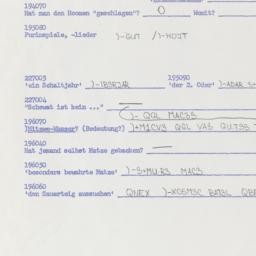 194070
Hat man den Hoomen "geschlagen"? O Womit?
195080
Purimspiele, -lieder )-GUT /)-HOJT
227003 195090
'ein Schaltjahr' )-IBERJAR 'der 2. Oder' )-ADAR
227004
"Schewat ist kein ..."
)- QGL MAC3S
196070
)Mitswe-Wasser? (Bedeutung?) )+M1CV3 QGL VAS
196040
Hat jemand selbst Matze gebacken?
196050
'besonders bewahrte Matze' )-S+MU.R3 MAC3
196060
'den Sauerteig aussuchen' QNEX )-XO8M3C